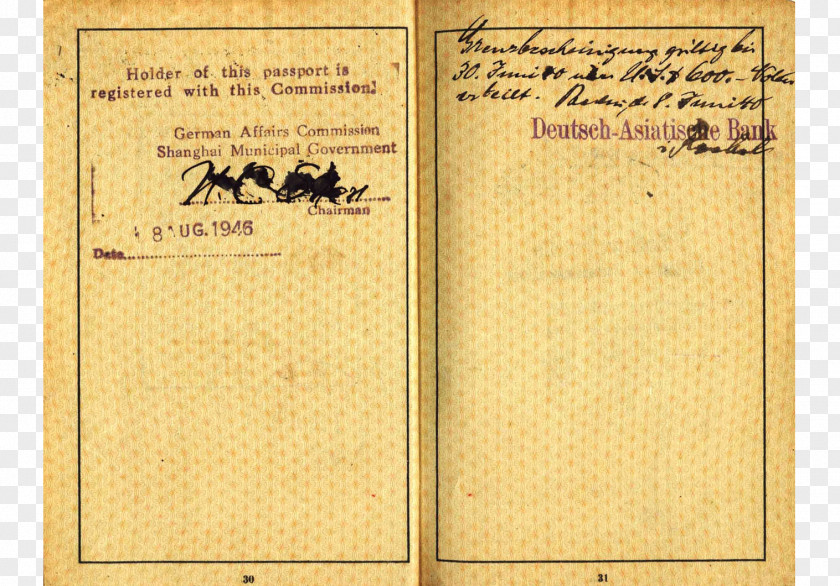 Holder of this passport is
registered with this Commission.
German Affairs Commission
Shanghai Municipal Government
Chairman
8 AUG. 1946
Date
30
Grenzbescheinigung gültig bis
30. Juni 40 über U.S.$ 600.-
erteilt. 8. Juni 40
Deutsch-Asiatische Bank
31